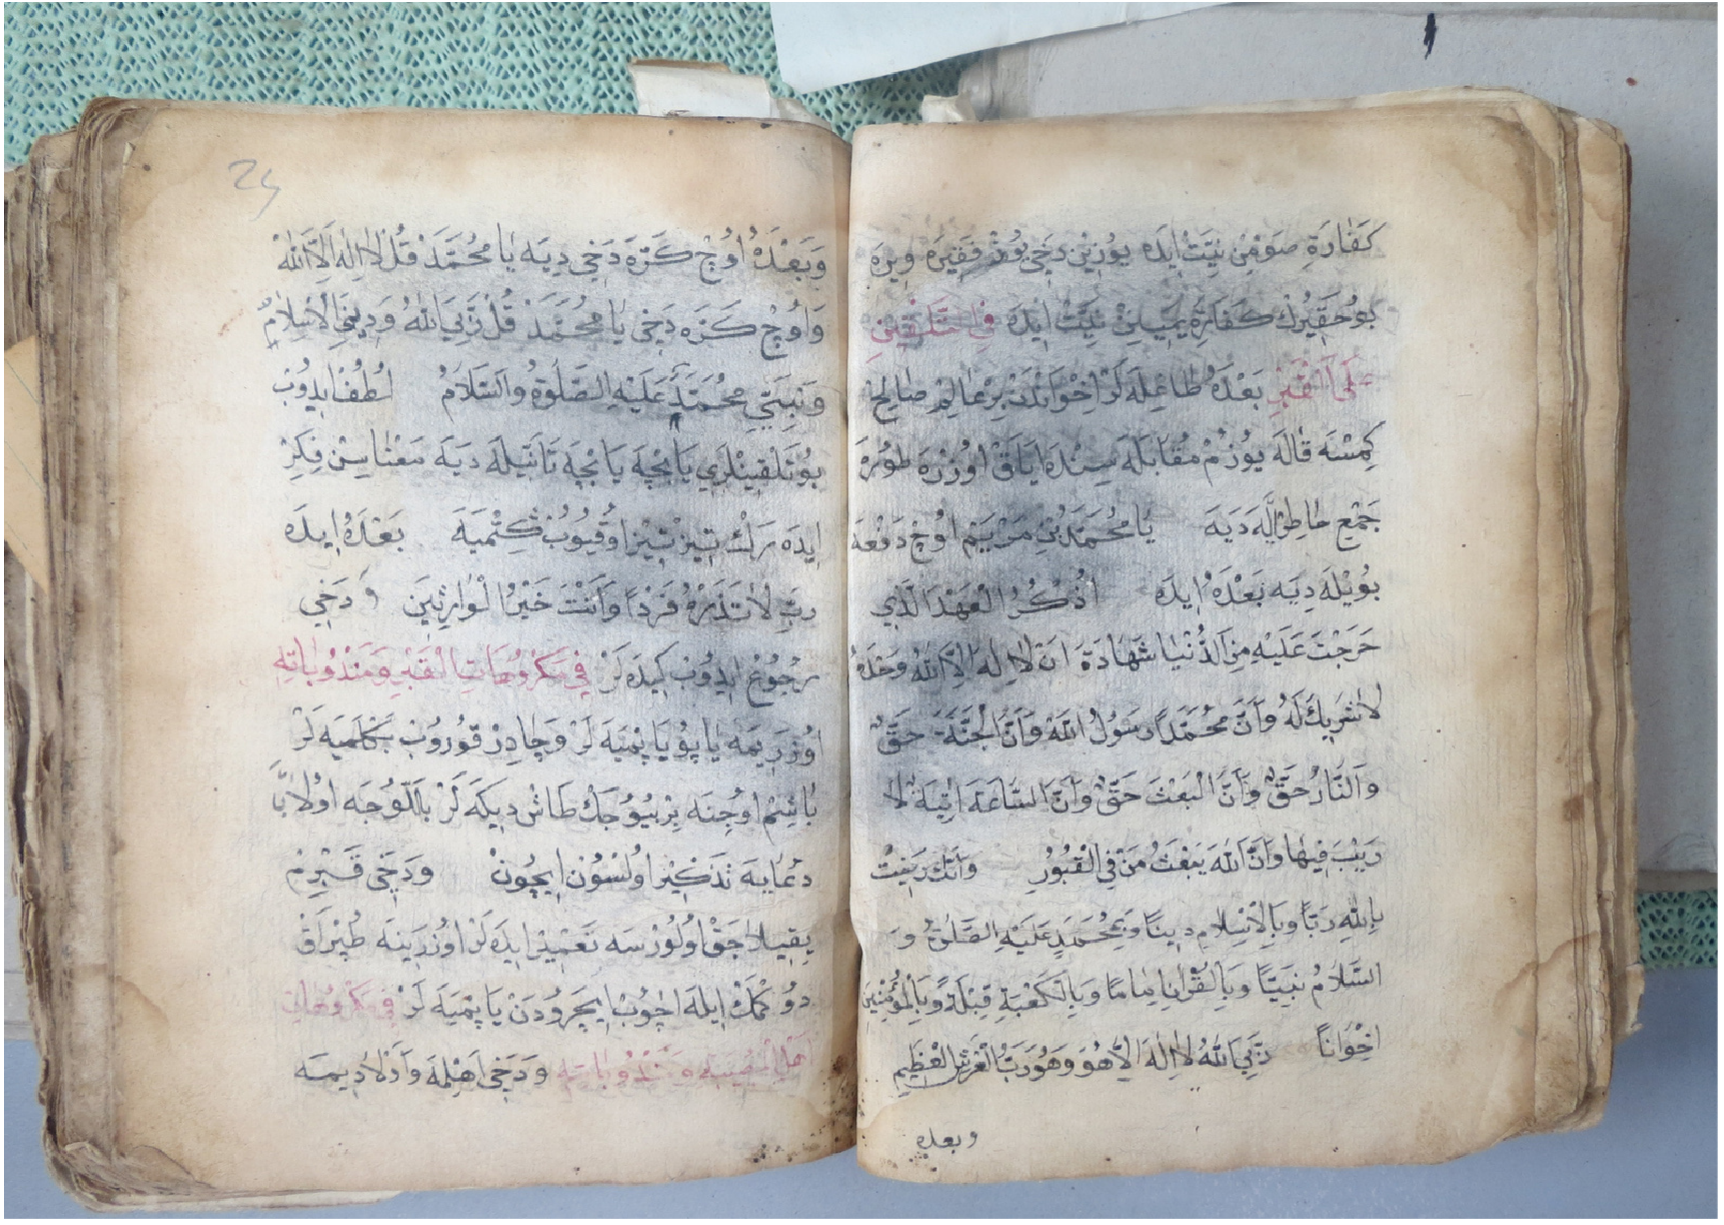 كَفَارَةِ صَوْمِنِ نِيَّتْ اِيدَه يوُزِينْ دَخِي يوُزْ فَقِيرَه وِيرَه
بوُ حَقِيرُكْ كَفَارَةِ يَمِينِنْ نِيَّتْ اِيدَه فِي التَّلْقِينِ
عَلَى الْقَبْرِ بَعْدَهُ طَاغِلَه لَرْ اِخْوَانْدَنْ بِرْ عَالِمْ صَالِحْ
كِمْسَنَه قَالَه يوُزُمْ مُقَابَلَه سِنْدَه اَيَاقْ اوُزْرَه طوُرَهْ
جَمْعِ خَاطِرْ اِلَه دَيَه يَا مُحَمَّدْ بْنِ مَرْيَمْ اوُچْ دَفْعَه
بوُيْلَه دِيَه بَعْدَهُ اِيدَه اُذْكُرْ الْعَهْدَ الَّذِي
خَرَجْتَ عَلَيْهِ مِنَ الدُّنْيَا شَهَادَةَ اَنْ لَا اِلَهَ اِلَّا اللهُ وَحْدَهُ
لَا شَرِيكَ لَهُ وَاَنَّ مُحَمَّدًا رَسُولُ اللهِ وَاَنَّ الْجَنَّةَ حَقٌّ
وَالنَّارُ حَقٌّ وَاَنَّ الْبَعْثَ حَقٌّ وَاَنَّ السَّاعَةَ اٰتِيَةٌ لَا
رَيْبَ فِيهَا وَاَنَّ اللهَ يَبْعَثُ مَنْ فِي الْقُبُورِ وَاَنَّكَ رَضِيتَ
بِاللهِ رَبًّا وَبِالْاِسْلَامِ دِينًا وَبِمُحَمَّدٍ عَلَيْهِ الصَّلٰوةُ وَ
السَّلَامُ نَبِيًّا وَبِالْقُرْاٰنِ اِمَامًا وَبِالْكَعْبَةِ قِبْلَةً وَبِالْمُؤْمِنِينَ
اِخْوَانًا رَبِّيَ اللهُ لَا اِلَهَ اِلَّا هُوَ وَهُوَ رَبُّ الْعَرْشِ الْعَظِيمِ
وبعده
24
وَبَعْدَهُ اوُچْ كَرَّه دَخِي دِيَه يَا مُحَمَّدْ قُلْ لَا اِلَهَ اِلَّا اللهُ
وَاوُچْ كَرَّه دَخِي يَا مُحَمَّدْ قُلْ رَبِّيَ اللهُ وَدِينِيَ الْاِسْلَامُ
وَنَبِيِّي مُحَمَّدٌ عَلَيْهِ الصَّلٰوةُ وَالسَّلَامُ لُطُفْ اِيدُوبْ
بوُ تَلْقِينْلَرِي يَابْچَه يَابْچَه تَاَنِّيلَه دِيَه مَعْنَاسِنْ فِكِرْ
اِيدَه رَكْ تِيزْ تِيزْ اوُقِيُوبْ كِتْمَيَه بَعْدَهُ اِيدَه
رَبِّ لَا تَذَرْهُ فَرْدًا وَاَنْتَ خَيْرُ الْوَارِثِينَ وَدَخِي
رُجُوعْ اِيدُوبْ كِيدَه لَرْ فِي مَكْرُوهَاتِ الْقَبْرِ وَمَنْدُوبَاتِهِ
اوُزَرِيمَه يَاپوُ يَاپْمَيَه لَرْ وَچَادِرْ قوُرُوبْ بَكْلَمَيَه لَرْ
بَاشِمْ اوُجِنَه بِرْ بيُوُجَكْ طَاشْ دِيكَه لَرْ بَاللّوُجَه اوُلَا تَا
دُعَايَه تَذْكِيرْ اوُلْسُونْ اِيچُونْ وَدَخِي قَبْرِمْ
يِقِيلَاجَقْ اوُلُورْسَه تَعْمِيرْ اِيدَه لَرْ اوُزَرِينَه طُپْرَاقْ
دوُكْمَكْ اِيلَه اچوُبْ اِيچَرُودَنْ يَاپْمَيَه لَرْ فِي مَكْرُوهَاتِ
اَهْلِ الْمُصِيبَه وَمَنْدُوبَاتِهِ وَدَخِي اَهْلِمَه وَاَوْلَادِيمَه